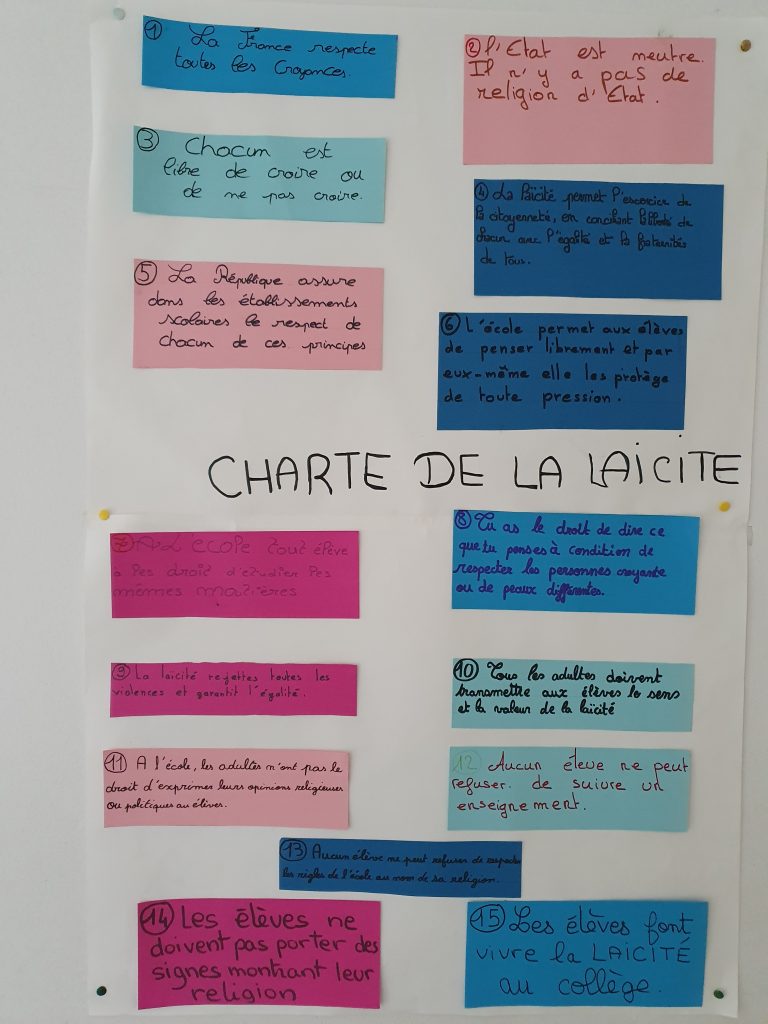 ① La France respecte
toutes les Croyances.
② l'Etat est neutre.
Il n'y a pas de
religion d'Etat.
③ Chacun est
libre de croire ou
de ne pas croire.
④ La laïcité permet l'exercice de
la citoyenneté, en conciliant la liberté de
chacun avec l'égalité et la fraternités
de tous.
⑤ La République assure
dans les établissements
scolaires le respect de
chacun de ces principes
⑥ L'école permet aux élèves
de penser librement et par
eux-même elle les protège
de toute pression.
CHARTE DE LA LAICITE
⑦ A L'école tout élève
à les droit d'étudier les
mêmes matières
⑧ Tu as le droit de dire ce
que tu penses à condition de
respecter les personnes croyante
ou de peaux différentes.
⑨ La laicité rejettes toutes les
violences et garantit l'égalité.
⑩ Tous les adultes doivent
transmettre aux élèves le sens
et la valeur de la laïcité
⑪ A l'école, les adultes n'ont pas le
droit d'exprimes leurs opinions religieuses
ou politiques au élèves.
⑫ Aucun éleve ne peut
refuser. de suivre un
enseignement.
⑬ Aucun élève ne peut refuser de respecter
les règles de l'école au nom de sa religion.
⑭ Les élèves ne
doivent pas porter des
signes montrant leur
religion
⑮ Les élèves font
vivre la LAICITÉ
au collège.